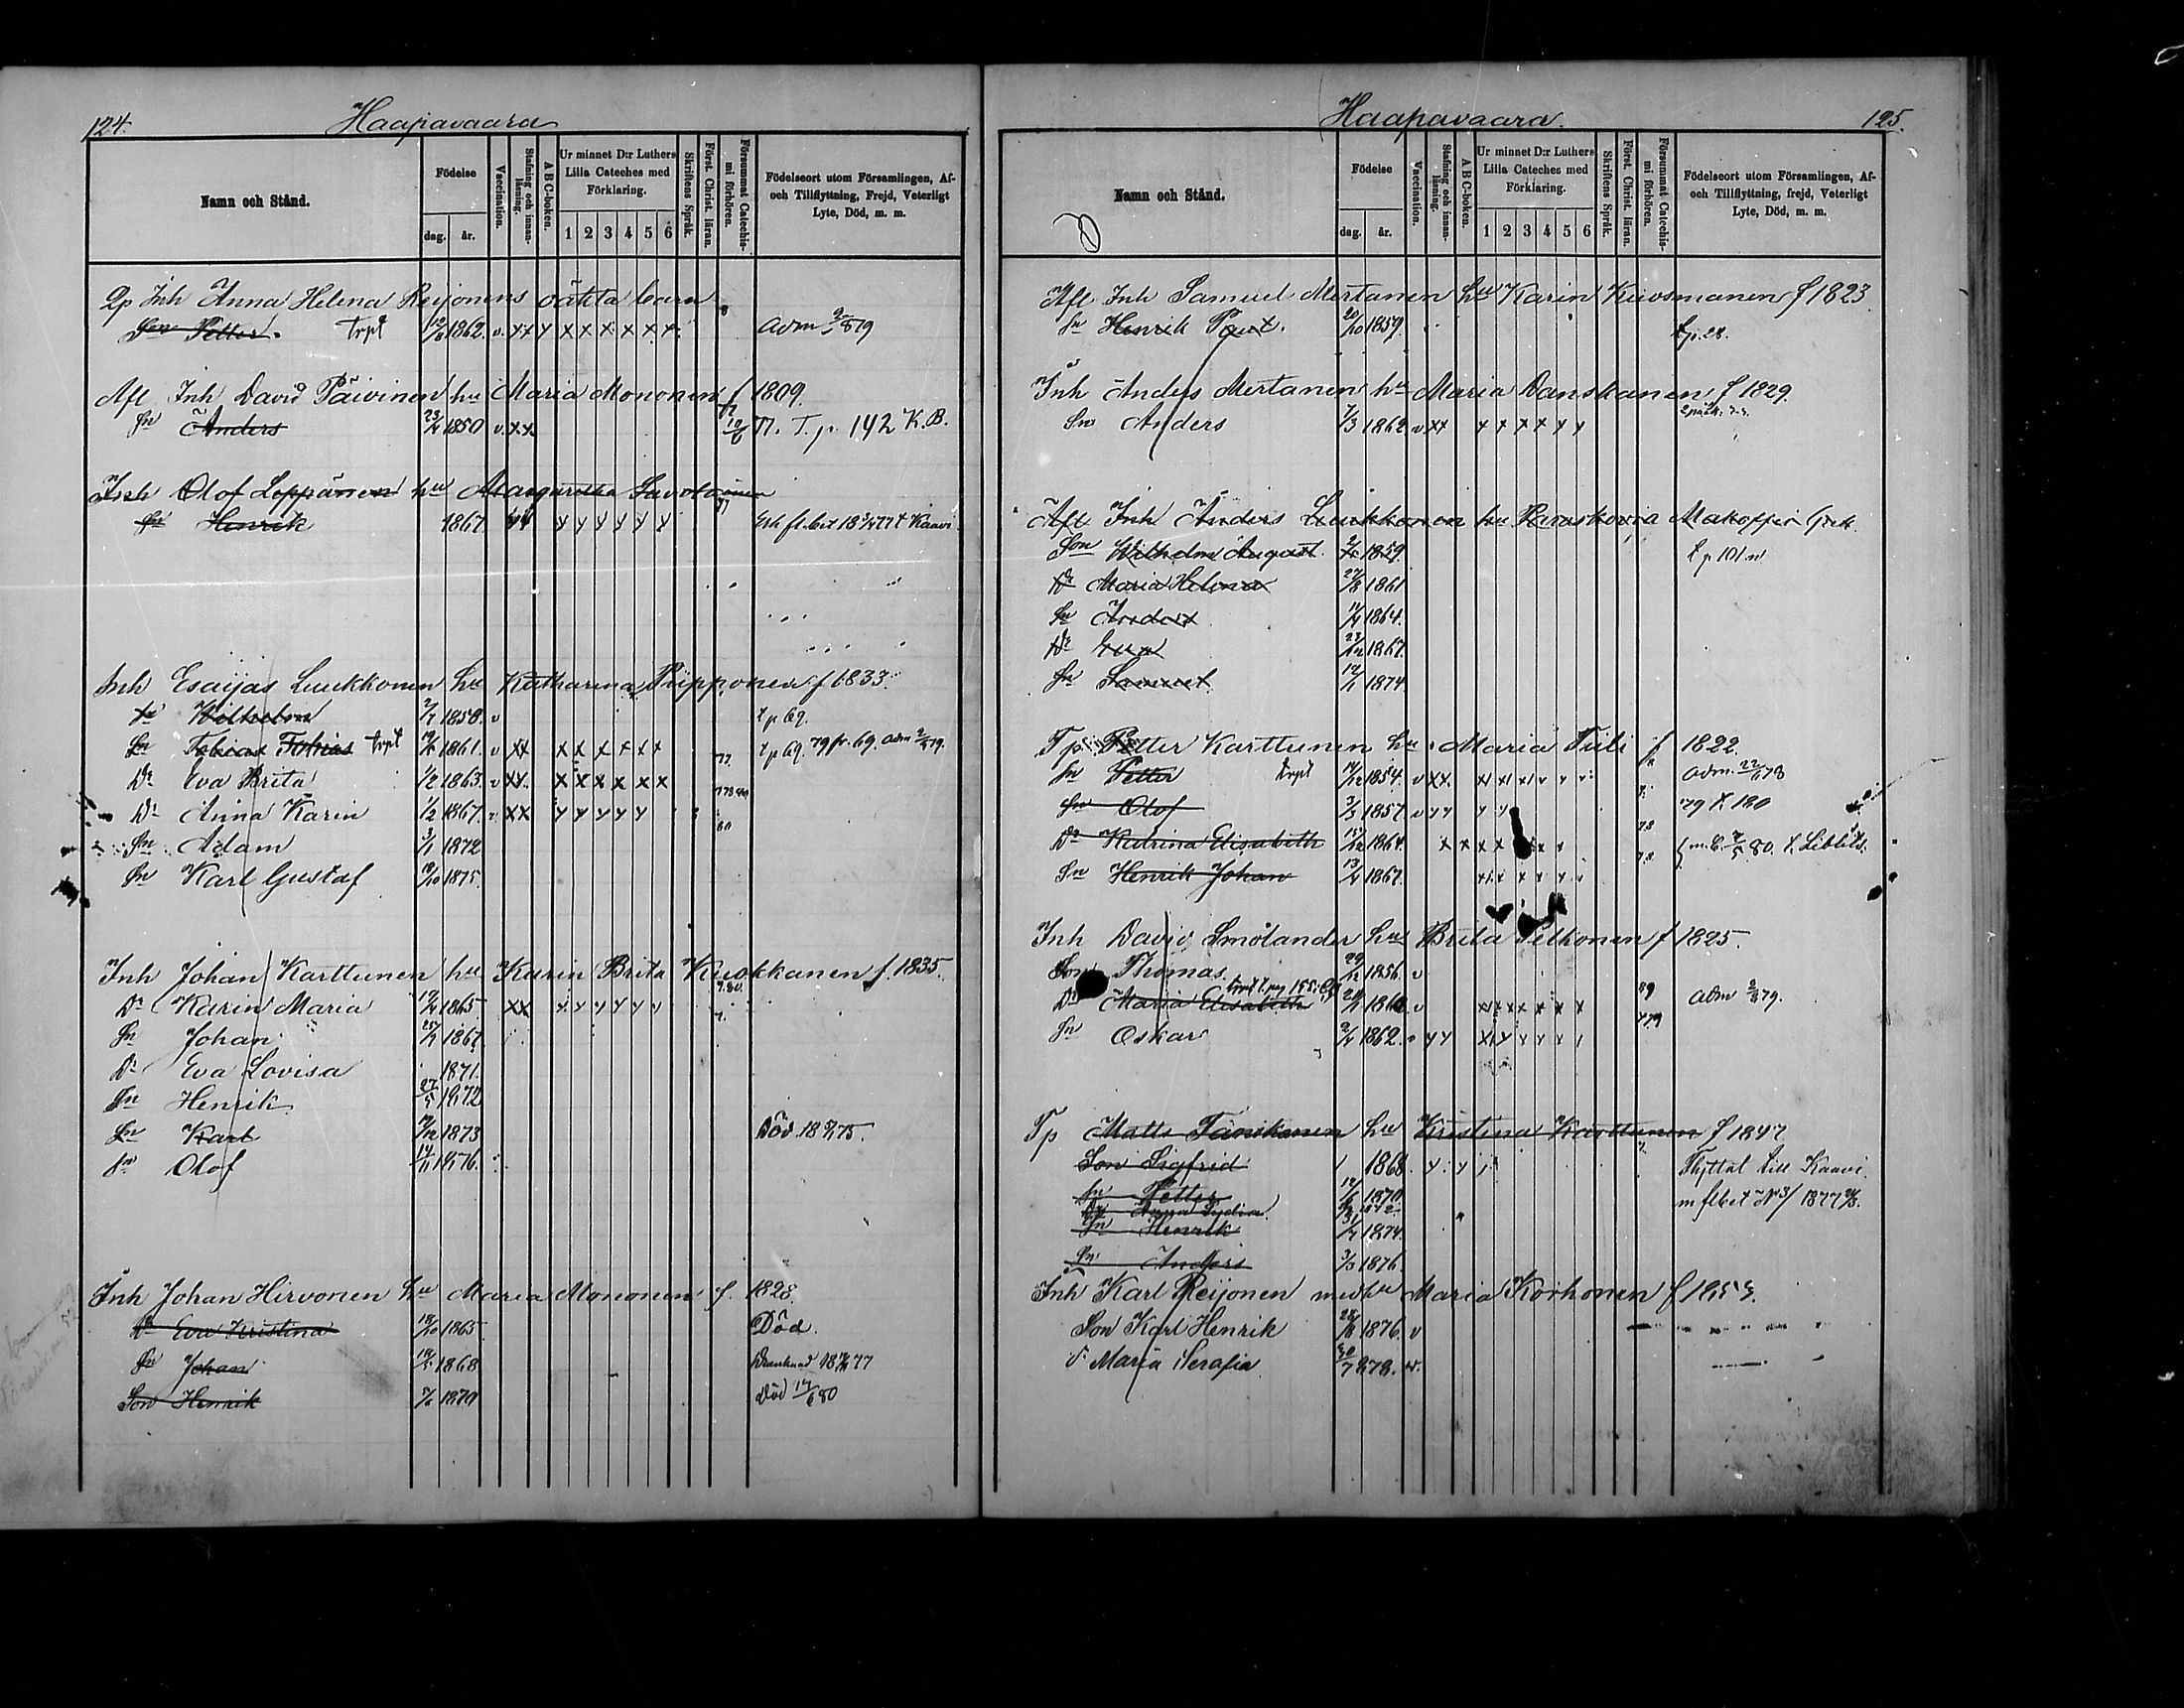 124.
Haapavaara
Namn och Stånd.
Födelse
dag.
år.
Vaccination.
Stafning och innanläsning.
A B C-boken.
Ur minnet D:r Luthers Lilla Cateches med Förklaring.
1 2 3 4 5 6
Skriftens Språk.
Först. Christ. läran.
Försummat Catechismi förhören.
Födelseort utom Församlingen, Af- och Tillflyttning, Frejd, Veterligt Lyte, Död, m. m.
Inh Anna Helena Reijonens oäkta barn
Petter. 1862. v. xx y x x x x x x adm 879
Afl. Inh David Päivinen hu Maria Mononen f 1809.
Sn Anders 23/4 1850 v. x.x. T. p. 142 K. B.
Inh Olof Loppönen hu Margaretha
Sn Henrik 1867 y y y y y y Kaavi
Inh Esaijas Luukkonen hu Katharina Piipponen f 1833.
Wilhelm 2/7 1858. v t p 69.
Sn Tobias Tobias 1861. v xx x x x x x x t p 69. 79 fr. 69. adm
Dr Eva Brita 1/2 1863. v xx. x x x x x x
Dr Anna Karin 1/2 1867. xx y y y y y
Sn Adam 3/1 1872
Sn Karl Gustaf 19/10 1875.
Inh Johan Karttunen hu Karin Brita Kuokkanen f. 1835.
Dr Karin Maria 1865. xx y y y y y y
Sn Johan 1867
Dr Eva Lovisa 1871.
Sn Henrik 27/5 1872
Sn Karl 1873 Död 75.
Sn Olof 1876.
Inh Johan Hirvonen hu Maria Mononen f. 1828.
Dr Eva Kristina 18/10 1865 Död.
Sn Johan 1868 77
Son Henrik 1870 död 80
125.
Haapavaara.
Namn och Stånd.
Födelse
dag.
år.
Vaccination.
Stafning och innanläsning.
A B C-boken.
Ur minnet D:r Luthers Lilla Cateches med Förklaring.
1 2 3 4 5 6
Skriftens Språk.
Först. Christ. läran.
Försummat Catechismi förhören.
Födelseort utom Församlingen, Af- och Tillflyttning, frejd, Veterligt Lyte, Död, m. m.
Afl Inh Samuel Mertanen hu Karin Kuosmanen f 1823
Sn Henrik Paul. 20/10 1859. t p. 28.
Inh Anders Mertanen hu Maria Danskanen f 1829.
Sn Anders 7/3 1862 v. xx y x x x y y
Afl Inh Anders Luukkonen hu Paraskovia Makoffei
Son Wilhelm August. 1859. t p 101
Dr Maria Helena 27/8 1861
Sn Anders 1864.
Dr Eva 1867.
Sn Samuel 1874
Tp Petter Karttunen hu Maria Tuli f 1822.
Sn Petter 1854. v xx. adm. 22/6 78
Sn Olof 3/3 1857. v y y y y 79 t. 180
Dr Katrina Elisabeth 1864. x x x x x x m. b. 7/5 80. t. Libelits.
Sn Henrik Johan 13/4 1867.
Inh David Smålander hu Brita Pelkonen f 1825.
Son Thomas 29/12 1856. v
Dr Maria Elisabeth v adm 79.
Sn Oskar 2/4 1862. y y
Tp Matts Tanskanen hu Kristina Karttunen f 1847
Son Sigfrid 1868 Flyttat till Kaavi
Sn Petter 1870 m flbet No 3/ 1877
Dr Anna Lydia. 1872
Sn Henrik 31/4 1874.
Sn Anders 3/3 1876.
Inh Karl Reijonen med hu Maria Korhonen f 1855.
Son Karl Henrik 28/8 1876. v
Dr Maria Serafia 30/7 1878. v.